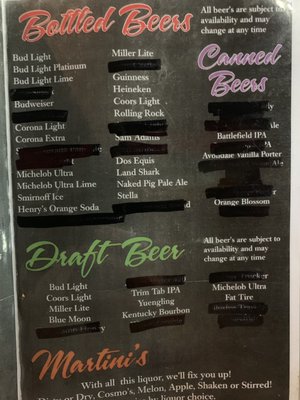 Bottled Beers
Bud Light
Bud Light Platinum
Bud Light Lime
Budweiser
Corona Light
Corona Extra
Michelob Ultra
Michelob Ultra Lime
Smirnoff Ice
Henry's Orange Soda
Miller Lite
Guinness
Heineken
Coors Light
Rolling Rock
Sam Adams
Dos Equis
Land Shark
Naked Pig Pale Ale
Stella
All beer's are subject to
availability and may
change at any time
Canned
Beers
Battlefield IPA
Avondale Vanilla Porter
Orange Blossom
Draft Beer
All beer's are subject to
availability and may
change at any time
Bud Light
Coors Light
Miller Lite
Blue Moon
Trim Tab IPA
Yuengling
Kentucky Bourbon
Michelob Ultra
Fat Tire
Martini's
With all this liquor, we'll fix you up!
Dirty or Dry, Cosmo's, Melon, Apple, Shaken or Stirred!
by liquor choice.